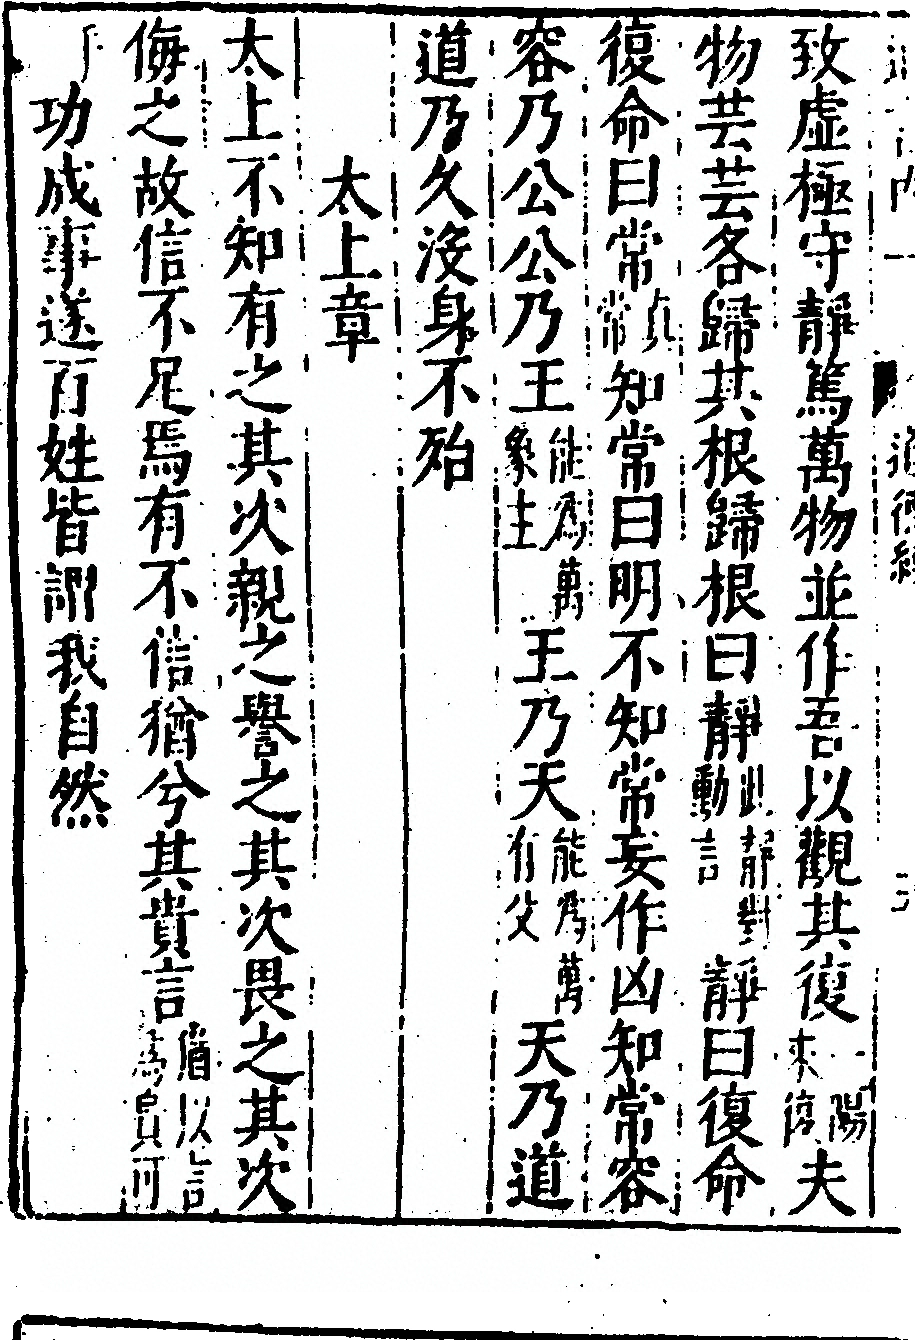 致虛極守靜篤萬物並作吾以觀其復陽來復夫
物芸芸各歸其根歸根曰靜此靜對動言靜曰復命
復命曰常真常知常曰明不知常妄作凶知常容
容乃公公乃王能爲萬象主王乃天能爲萬有父天乃道
道乃久沒身不殆
太上章
太上不知有之其次親之譽之其次畏之其次
侮之故信不足焉有不信猶兮其貴言猶以言爲貴可
功成事遂百姓皆謂我自然